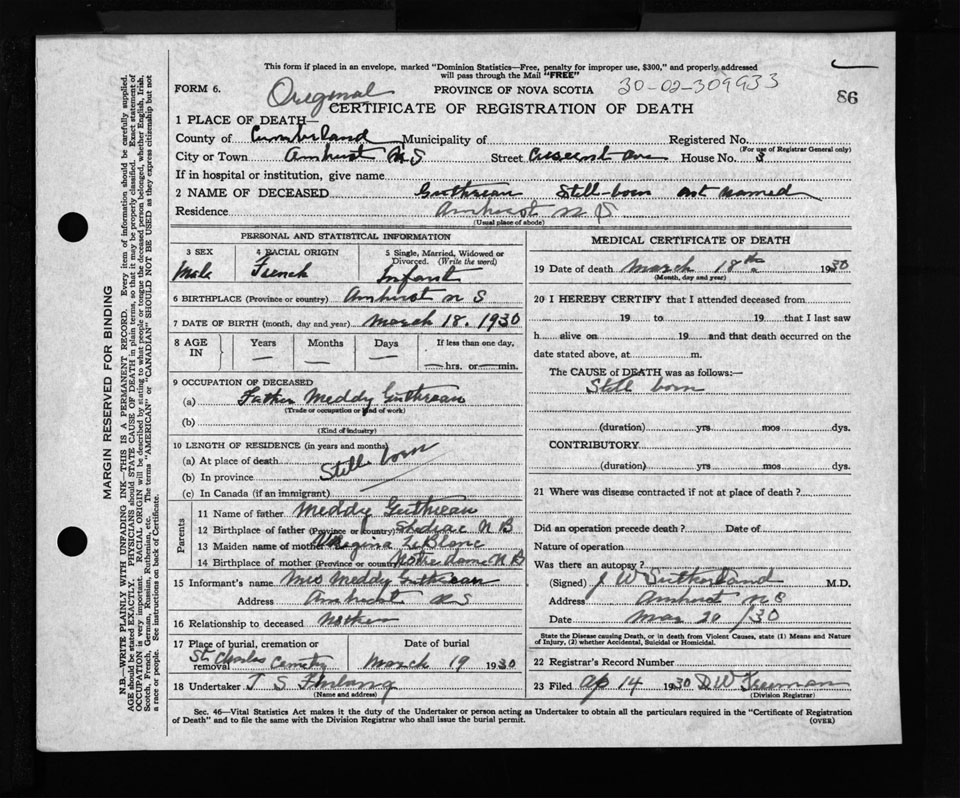 This form if placed in an envelope, marked "Dominion Statistics—Free, penalty for improper use, $300," and properly addressed
will pass through the Mail "FREE"
FORM 6.
Original
PROVINCE OF NOVA SCOTIA
30-02-309933
86
CERTIFICATE OF REGISTRATION OF DEATH
1 PLACE OF DEATH—
County of Cumberland Municipality of Registered No.
(For use of Registrar General only)
City or Town Amherst N S Street Crescent Ave House No. 3
If in hospital or institution, give name
2 NAME OF DECEASED Guthreau Still-born not named
Residence Amherst N S
(Usual place of abode)
PERSONAL AND STATISTICAL INFORMATION
3 SEX 4 RACIAL ORIGIN 5 Single, Married, Widowed or
Divorced. (Write the word)
Male French Infant
6 BIRTHPLACE (Province or country) Amherst N S
7 DATE OF BIRTH (month, day and year) March 18. 1930
8 AGE IN Years Months Days If less than one day,
— — — — hrs. or — min.
9 OCCUPATION OF DECEASED
(a) Father Meddy Guthreau
(Trade or occupation or kind of work)
(b)
(Kind of industry)
10 LENGTH OF RESIDENCE (in years and months)
(a) At place of death
(b) In province Still born
(c) In Canada (if an immigrant)
Parents
11 Name of father Meddy Guthreau
12 Birthplace of father (Province or country) Shediac N B
13 Maiden name of mother Regina LeBlanc
14 Birthplace of mother (Province or country) Notre Dame N B
15 Informant's name Mrs Meddy Guthreau
Address Amherst N S
16 Relationship to deceased Mother
17 Place of burial, cremation or
removal Date of burial
St. Charles Cemetry March 19 1930
18 Undertaker T S Furlong
(Name and address)
MEDICAL CERTIFICATE OF DEATH
19 Date of death March 18th 1930
(Month, day and year)
20 I HEREBY CERTIFY that I attended deceased from
19 to 19 that I last saw
h alive on 19 and that death occurred on the
date stated above, at m.
The CAUSE of DEATH was as follows:—
Still born
(duration) yrs mos dys.
CONTRIBUTORY
(duration) yrs mos dys.
21 Where was disease contracted if not at place of death?
Did an operation precede death? Date of
Nature of operation
Was there an autopsy?
(Signed) J W Sutherland M.D.
Address Amherst N S
Date Mar 20 /30
State the Disease causing Death, or in death from Violent Causes, state (1) Means and Nature
of Injury, (2) whether Accidental, Suicidal or Homicidal.
22 Registrar's Record Number
23 Filed Ap 14 1930 D W Freeman
(Division Registrar)
Sec. 46—Vital Statistics Act makes it the duty of the Undertaker or person acting as Undertaker to obtain all the particulars required in the "Certificate of Registration
of Death" and to file the same with the Division Registrar who shall issue the burial permit.
(OVER)
MARGIN RESERVED FOR BINDING
N.B.—WRITE PLAINLY WITH UNFADING INK—THIS IS A PERMANENT RECORD. Every item of information should be carefully supplied.
AGE should be stated EXACTLY. PHYSICIANS should STATE CAUSE OF DEATH in plain terms, so that it may be properly classified. Exact statement of
OCCUPATION is very important. RACIAL ORIGIN will be described by stating to what people or tongue the deceased person belonged, whether English, Irish,
Scotch, French, German, Russian, Ruthenian, etc. The terms "AMERICAN" or "CANADIAN" SHOULD NOT BE USED as they express citizenship but not
a race or people. See instructions on back of Certificate.